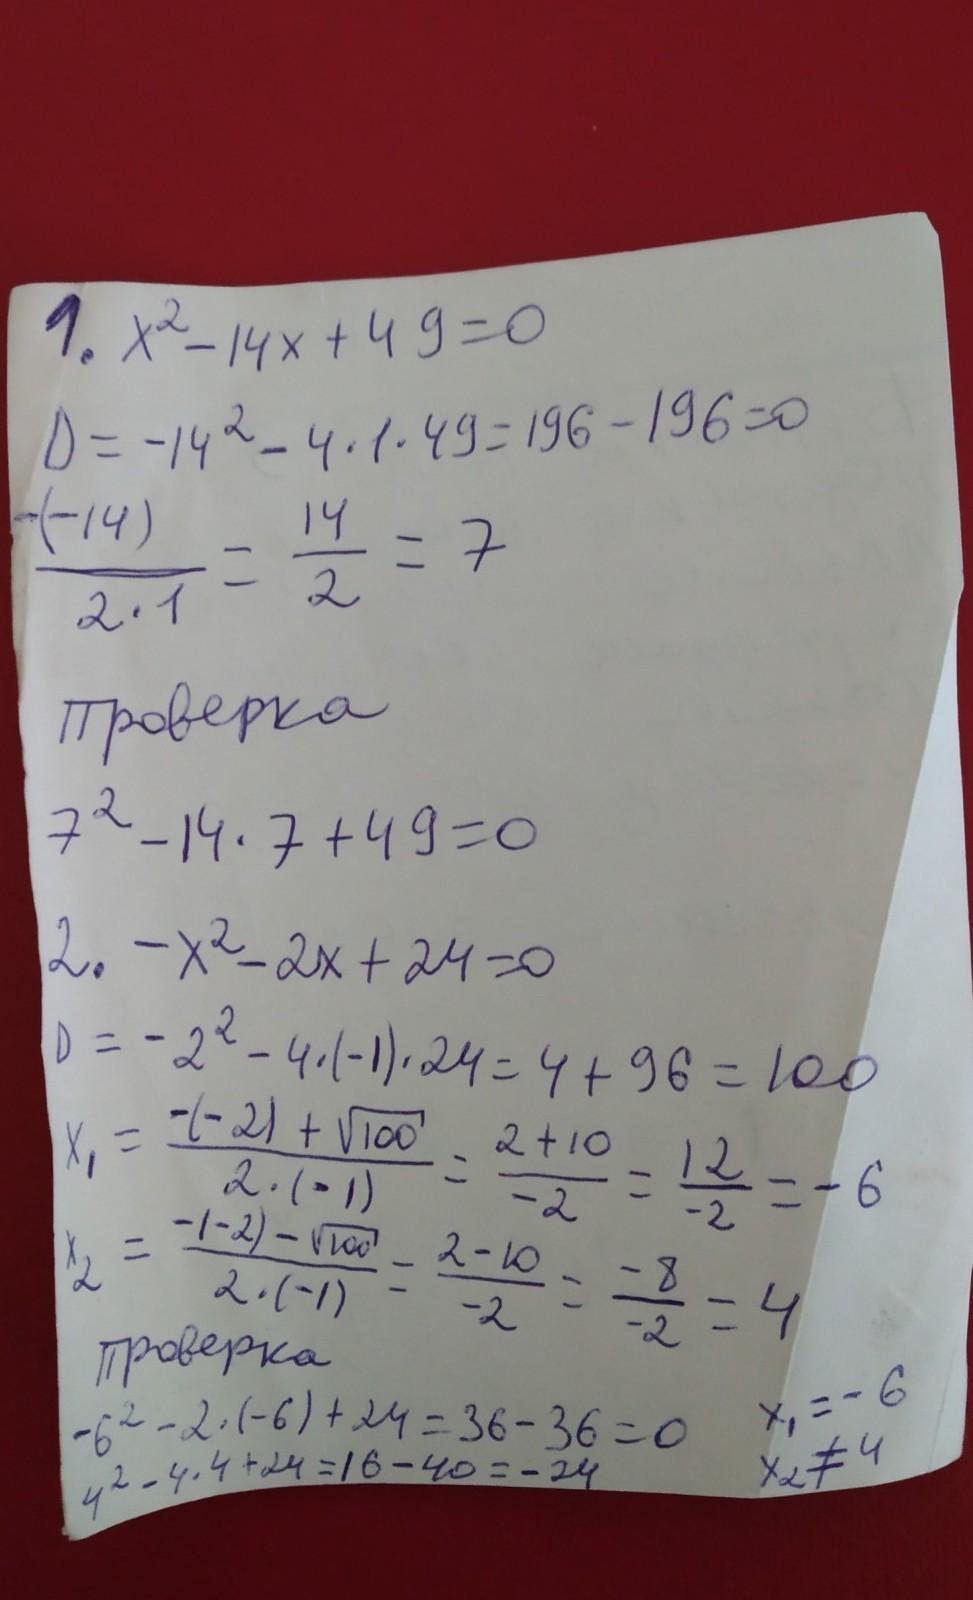 1. x² - 14x + 49 = 0
D = -14² - 4·1·49 = 196 - 196 = 0
-(-14)/2·1 = 14/2 = 7
Проверка
7² - 14·7 + 49 = 0
2. -x² - 2x + 24 = 0
D = -2² - 4·(-1)·24 = 4 + 96 = 100
x₁ = -(-2) + √100/2·(-1) = 2 + 10/-2 = 12/-2 = -6
x₂ = -(-2) - √100/2·(-1) = 2 - 10/-2 = -8/-2 = 4
Проверка
-6² - 2·(-6) + 24 = 36 - 36 = 0 x₁ = -6
4² - 4·4 + 24 = 16 - 40 = -24 x₂ ≠ 4